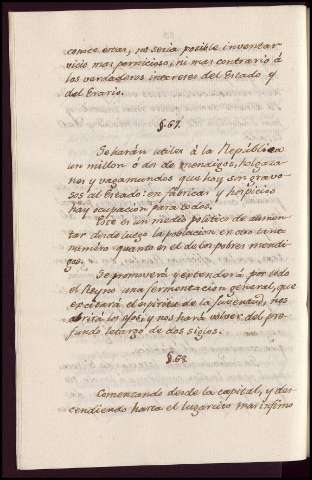 conice estas, no seria posible inventar
vicio mas pernicioso, ni mas contrario á
los verdaderos intereses del Estado y
del Erario.
§. 67.
Se harán utiles á la República
un millon ó dos de mendigos, holgaza-
nes y vagamundos que hoy son gravo-
sos al Estado: en fabricas y hospicios
hay ocupacion para todos.
Este es un medio politico de aumen-
tar desde luego la poblacion en otro tanto
numero quanto es el de los pobres mendi-
gos.
Se promoverá y extenderá por todo
el Reyno una fermentacion general, que
excitará el espiritu de la Juventud, nos
abrirá los ojos, y nos hará volver del pro-
fundo letargo de dos siglos.
§. 68.
Comenzando desde la capital, y des-
cendiendo hasta el lugarcito mas infimo